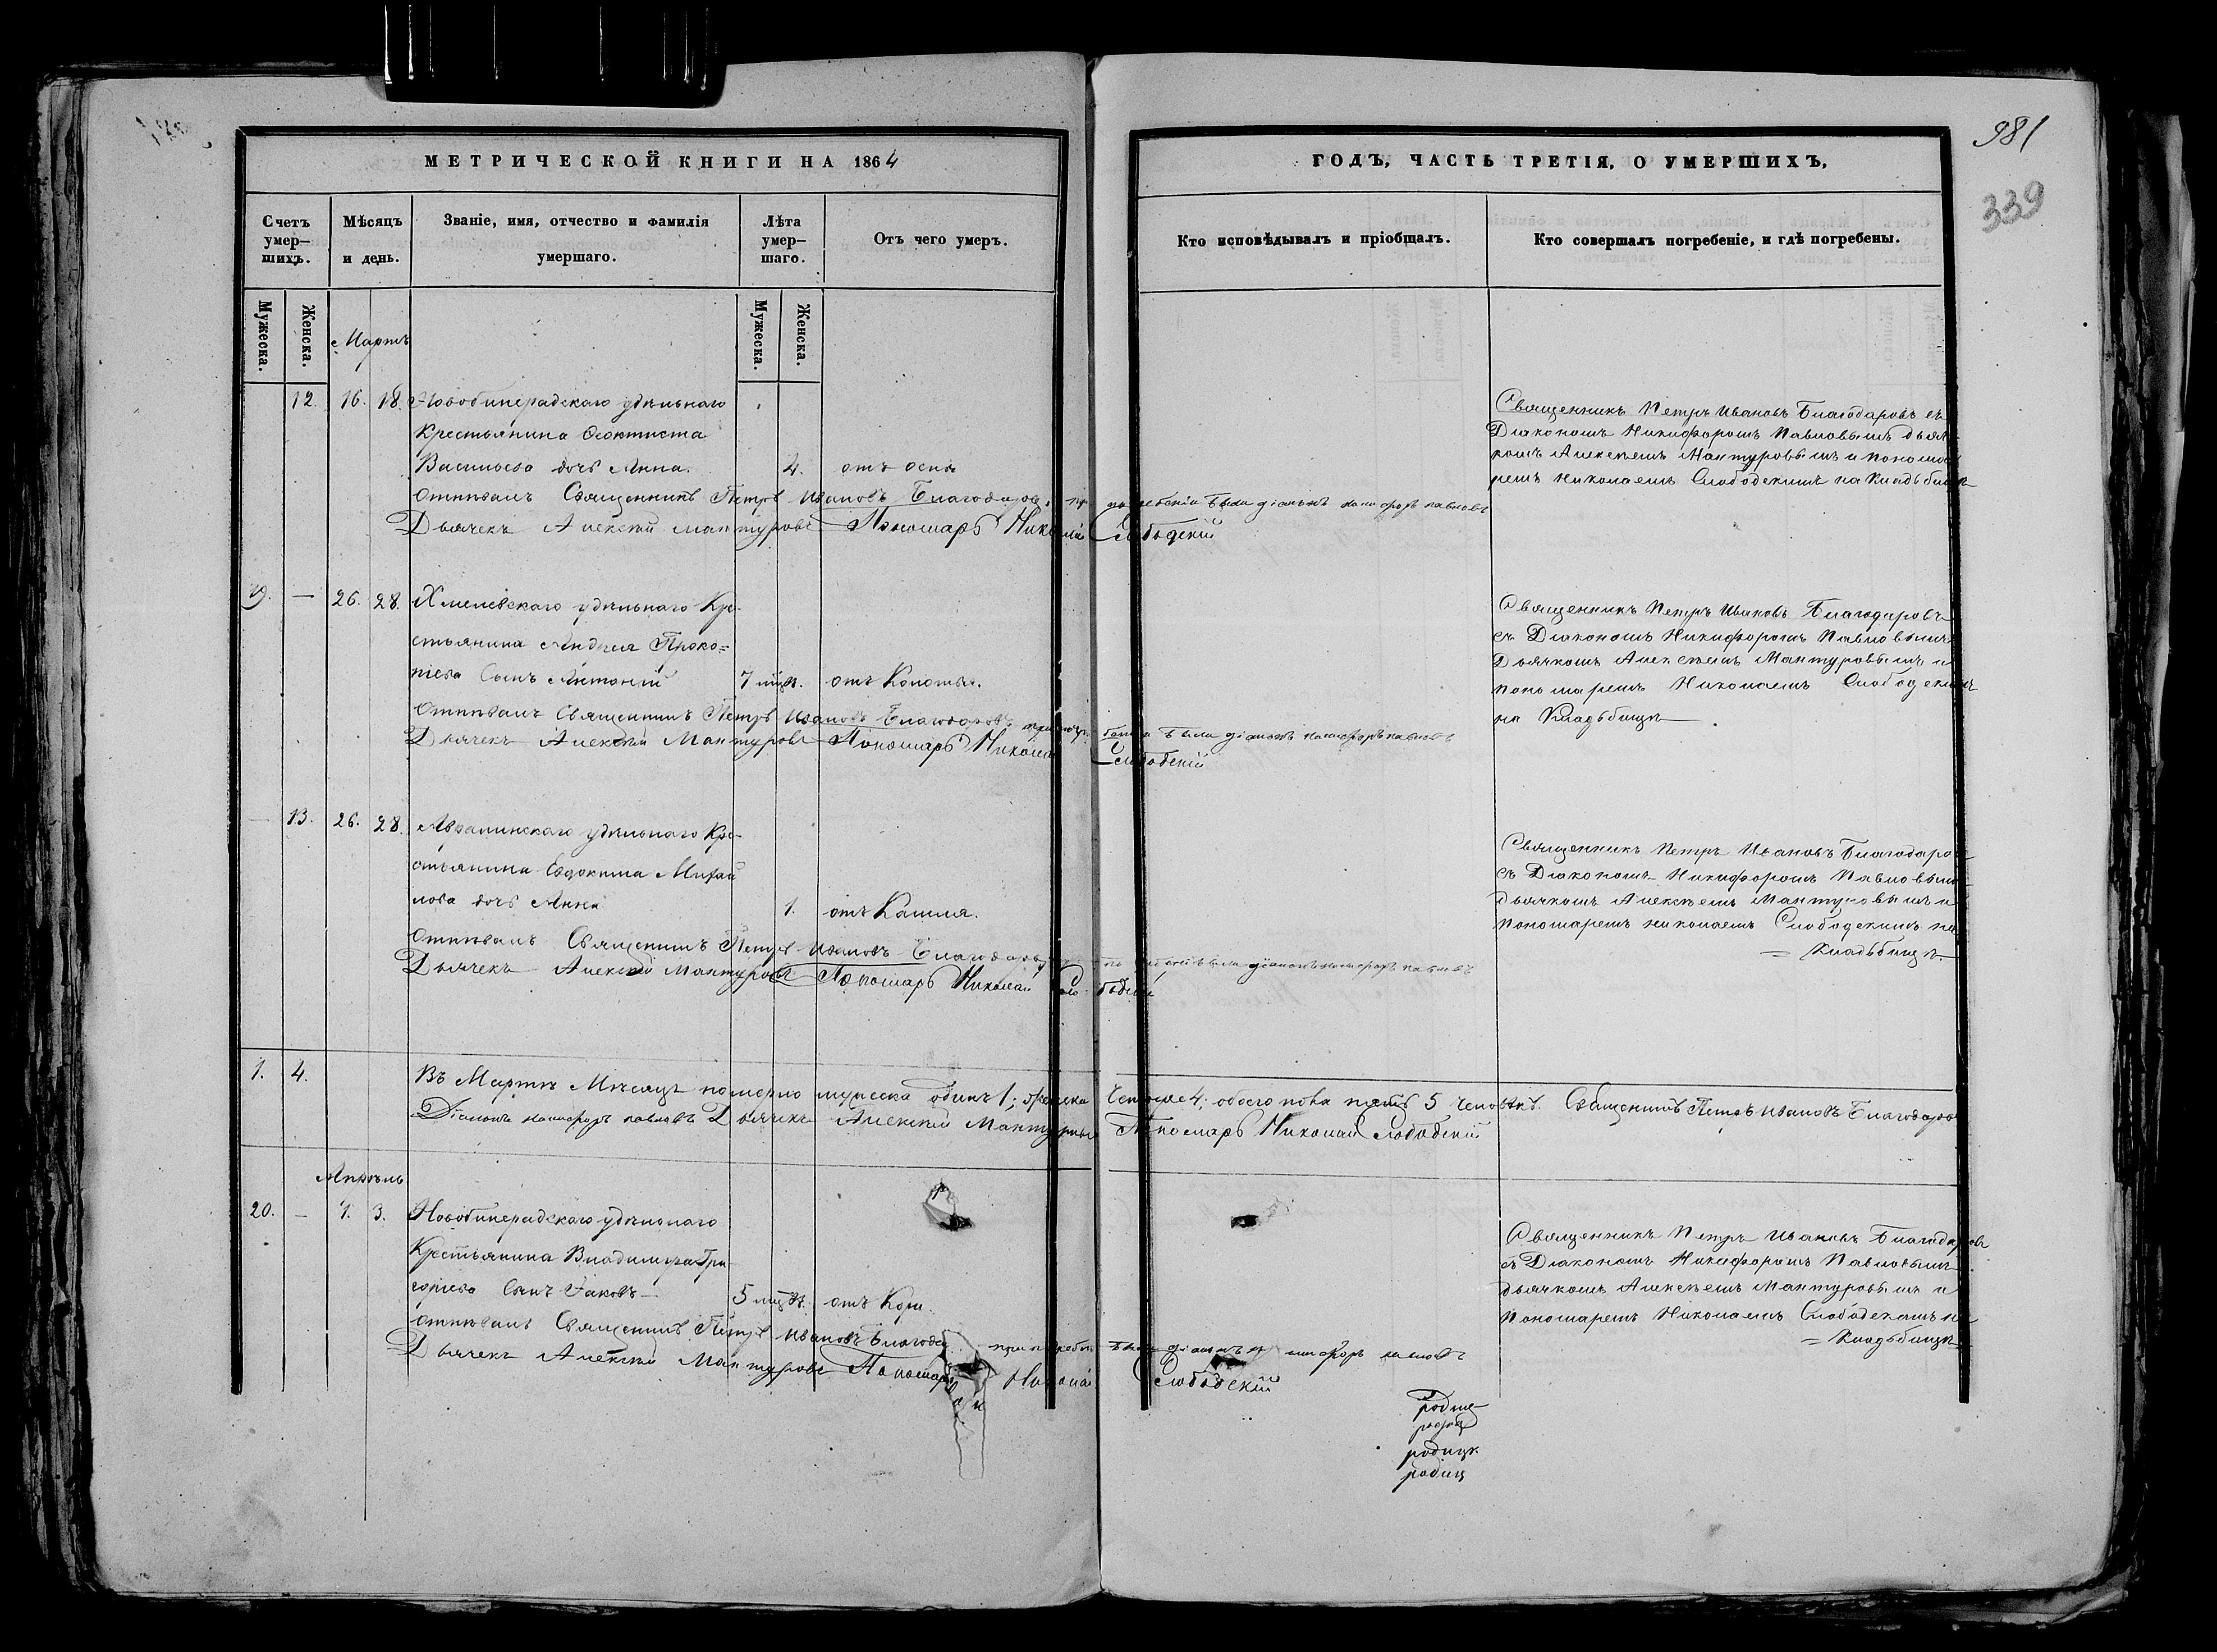 981
339
МЕТРИЧЕСКОЙ КНИГИ НА 1864
ГОДЪ, ЧАСТЬ ТРЕТІЯ, О УМЕРШИХЪ,
Счетъ умер—шихъ.
Мѣсяцъ и день.
Званіе, имя, отчество и фамилія умершаго.
Лѣта умер—шаго.
Отъ чего умеръ.
Кто исповѣдывалъ и пріобщалъ.
Кто совершалъ погребеніе, и гдѣ погребены.
Мужеска.
Женска.
Мужеска.
Женска.
Мартъ
12. 16. 18. удѣльнаго
Крестьянина Ѳеоктиста
Васильева дочь Анна. отъ оспы
Отпѣвалъ Священникъ Петръ Ивановъ Благодаровъ, при погребеніи были діаконъ никифоръ павловъ
Дьячекъ Алексѣй Мантуровъ Пономарь Николай Слободскій
Священникъ Петръ Ивановъ Благодаровъ съ
Діакономъ Никифоромъ Павловымъ дьяч
комъ Алексѣемъ Мантуровымъ и понома
ремъ Николаемъ Слободскимъ на Кладьбищѣ
19. — 26. 28. Хмелевскаго удѣльнаго Кре
стьянина Андрея Проко=
піева Сынъ Антоній 7 отъ Копотья.
Отпѣвалъ Священникъ Петръ Ивановъ Благодаровъ были діаконъ никифоръ павловъ
Дьячекъ Алексѣй Мантуровъ Пономарь Николай Слободскій
Священникъ Петръ Ивановъ Благодаровъ
съ Діакономъ Никифоромъ Павловымъ
Дьячкомъ Алексѣемъ Мантуровымъ и
пономаремъ Николаемъ Слободскимъ
на Кладьбищѣ
13. 26. 28. удѣльнаго Кре-
стьянина Евдокима Михай
лова дочь Анна 1. отъ Кашля.
Отпѣвалъ Священникъ Петръ Ивановъ Благодаровъ
Дьячекъ Алексѣй Мантуровъ Пономарь Николай Слободскій
Священникъ Петръ Ивановъ Благодаро
съ Діакономъ Никифоромъ Павловымъ
дьячкомъ Алексѣемъ Мантуровымъ и
пономаремъ николаемъ Слободскимъ на
= Кладьбищѣ.
1. 4. Въ Мартѣ Мѣсяцѣ померло мужеска одинъ 1; женска Четыре 4; обоего пола пять 5 человѣкъ. Священникъ Петръ Ивановъ Благодаровъ
Діаконъ никифоръ павловъ Дьячекъ Алексѣй Мантуровъ Пономарь Николай Слободскій
Апрѣль
20. — 1. 3. удѣльнаго
Крестьянина Владимира Гри
горьева Сынъ Іаковъ — 5 отъ Кори.
Отпѣвалъ Священникъ Петръ Ивановъ были діаконъ павловъ
Дьячекъ Алексѣй Мантуровъ Пономарь Николай Слободскій
Священникъ Петръ Ивановъ Благодаровъ
съ Діакономъ Никифоромъ Павловымъ
дьячкомъ Алексѣемъ Мантуровымъ и
Пономаремъ Николаемъ Слободскимъ на
= Кладьбищѣ